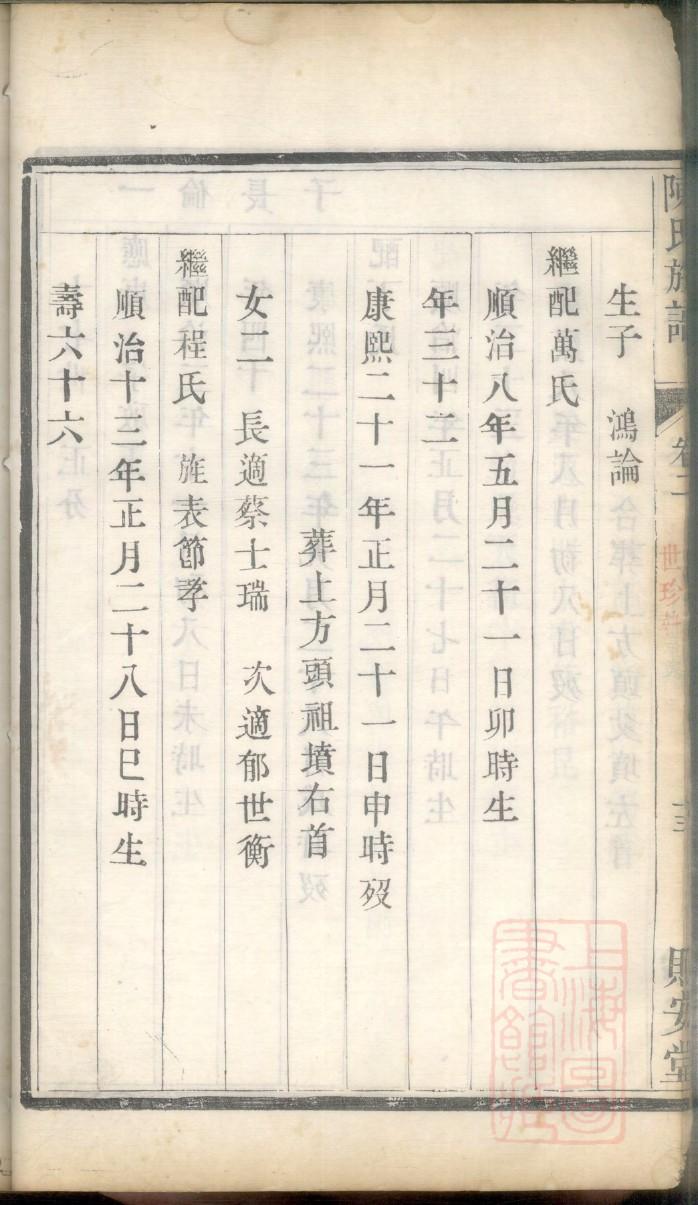 陳氏族譜
卷二
世珍
貽安堂
生子　鴻論
繼配萬氏
順治八年五月二十一日卯時生
年三十二
康熙二十一年正月二十一日申時歿
葬上方頭祖墳右首
女二　長適蔡士瑞　次適郁世衡
繼配程氏　旌表節孝
順治十二年正月二十八日巳時生
壽六十六
上海圖書館藏